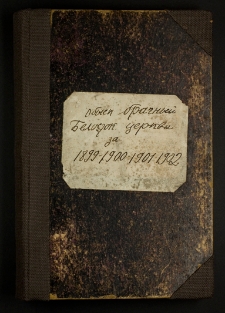 обыск брачный
церкви
за
1899-1900-1901-1902